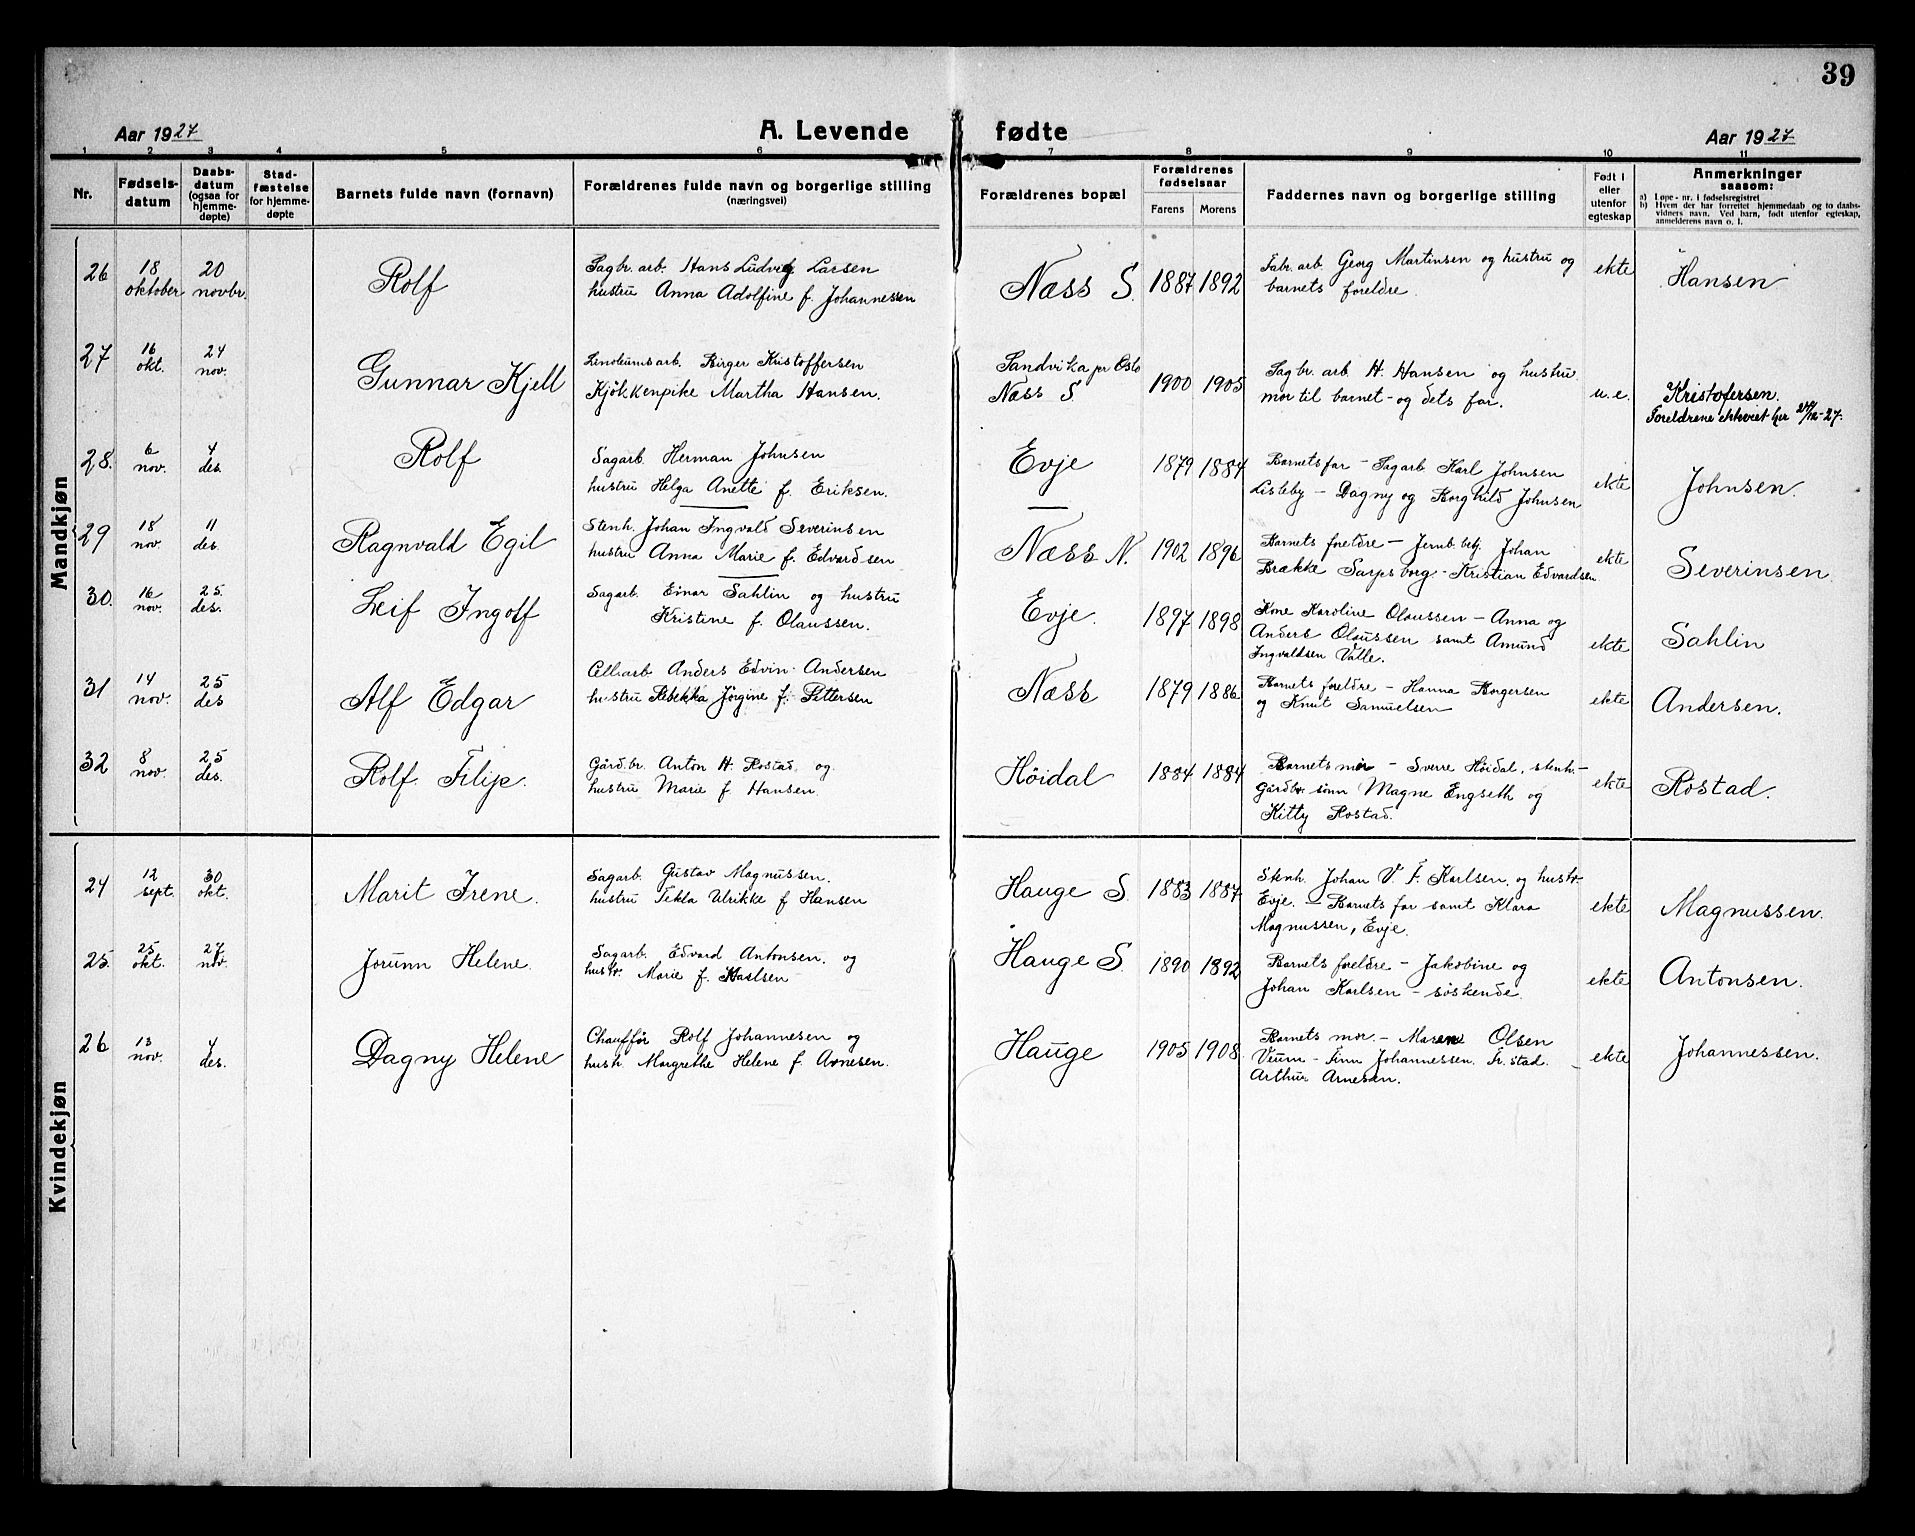 39
Aar 1927
A. Levende fødte
Aar 1927
1 2 3 4 5 6 7 8 9 10 11
Nr.
Fødsels-
datum
Daabs-
datum
(ogsaa for
hjemme-
døpte)
Stad-
fæstelse
for hjemme-
døpte
Barnets fulde navn (fornavn)
Forældrenes fulde navn og borgerlige stilling
(næringsvei)
Forældrenes bopæl
Forældrenes
fødselsaar
Farens Morens
Faddernes navn og borgerlige stilling
Født i
eller
utenfor
egteskap
Anmerkninger
saasom:
a) Løpe - nr. i fødselsregistret
b) Hvem der har forrettet hjemmedaab og to daabs-
vidners navn. Ved barn, født utenfor egteskap,
anmelderens navn o. l.
Mandkjøn
26
18
oktober
20
novbr.
Rolf
Sagbr. arb. Hans Ludvig Larsen
hustru Anna Adolfine f. Johannessen
Næss S.
1887 1892
Fabr. arb. Georg Martinsen og hustru og
barnets foreldre.
ekte
Hansen
27
16
okt.
24
nov.
Gunnar Kjell
Linoleumsarb. Birger Kristoffersen
Kjøkkenpike Martha Hansen.
Sandvika pr Oslo
Næss S.
1900 1905
Sagbr. arb. H. Hansen og hustru
mor til barnet - og dets far.
u.e.
Kristofersen.
Foreldrene ekteviet her 27/12-27.
28.
6
nov.
4
des.
Rolf
Sagarb. Herman Johnsen
hustru Helga Anette f. Eriksen.
Evje
1879 1884
Barnets far - Sagarb Karl Johnsen
Lisleby - Dagny og Borghild Johnsen
ekte
Johnsen.
29
18
nov.
11
des.
Ragnvald Egil
Stenh. Johan Ingvald Severinsen
hustru Anna Marie f. Edvardsen
Næss N.
1902 1896
Barnets foreldre - Jernb. betj. Johan
Brække Sarpsborg - Kristian Edvardsen
ekte
Severinsen.
30.
16
nov.
25
des.
Leif Ingolf
Sagarb. Einar Sahlin og hustru
Kristine f. Olaussen.
Evje.
1897 1898
Kone Karoline Olaussen - Anna og
Anders Olaussen samt Amund
Ingvaldsen Valle.
ekte
Sahlin
31
14
nov.
25
des
Alf Edgar
Celliarb Anders Edvin Andersen
hustru Rebekka Jørgine f. Pettersen
Næss
1879 1886
Barnets foreldre - Hanna Borgersen
og Knut Samuelsen
ekte
Andersen.
32
8
nov.
25
des.
Rolf Filip.
Gårdbr. Anton H. Rostad og
hustru Marie f. Hansen.
Höidal
1884 1884
Barnets mor - Sverre Höidal, stenh. -
Gårdbr. sönn Magne Engseth og
Kitty Rostad.
ekte
Rostad.
Kvindekjøn
24
12
sept.
30
okt.
Marit Irene.
Sagarb. Gustav Magnussen.
hustru Tekla Ulrikke f Hansen
Hauge S.
1883 1887
Stenh. Johan V. F. Karlsen. og hustr.
Evje. - Barnets far samt Klara
Magnussen, Evje.
ekte
Magnussen.
25.
25
okt.
27
nov.
Jorunn Helene.
Sagarb. Edvard Antonsen. og
hustr. Marie f. Karlsen
Hauge S.
1890 1892
Barnets foreldre - Jakobine og
Johan Karlsen - söskende.
ekte
Antonsen.
26
13
nov.
4
des.
Dagny Helene
Chauffør Rolf Johannesen og
hustr. Margrethe Helene f. Arnesen.
Hauge
1905 1908
Barnets mor. - Maren Olsen
Veum - Finn Johannessen. Fr. stad.
Arthur Arnesen.
ekte
Johannessen.